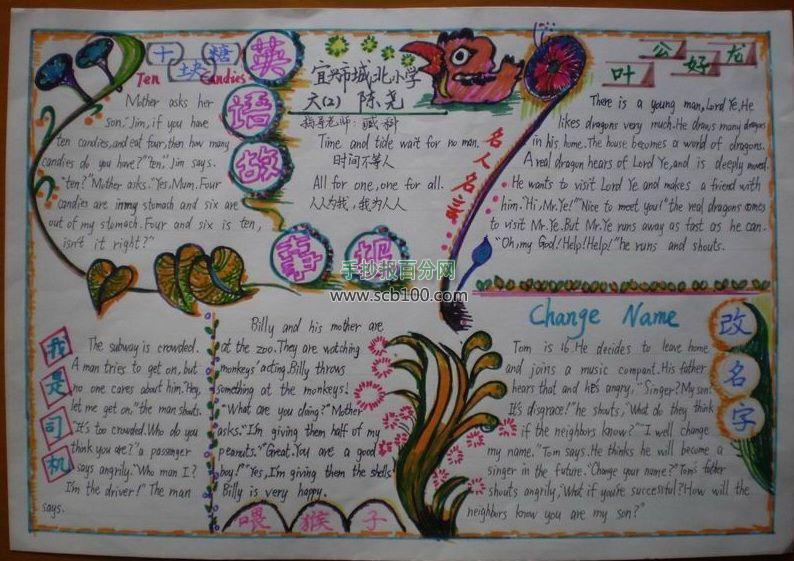 十块糖
Ten Candies
Mother asks her
son."Jim, if you have
ten candies,and eat four,then how many
candies do you have?" "ten." Jim says.
"ten?" Mother asks. "Yes,Mum. Four
candies are in my stomach and six are
out of my stomach. Four and six is ten,
isn't it right?"
英语故事吧
宜兴市城北小学
六(2) 陈尧
指导老师:臧科
Time and tide wait for no man.
时间不等人
All for one, one for all.
人人为我,我为人人
名人名言
叶公好龙
There is a young man, Lord Ye. He
likes dragons very much. He draws many dragons
in his home. The house becomes a world of dragons.
A real dragon hears of Lord Ye,and is deeply moved.
He wants to visit Lord Ye and makes a friend with
him. "Hi, Mr.Ye!" "Nice to meet you!" the real dragons comes
to visit Mr.Ye. But Mr.Ye runs away as fast as he can.
"Oh, my God! Help! Help!" he runs and shouts.
手抄报百分网
www.scb100.com
我是司机
The subway is crowded.
A man tries to get on, but
no one cares about him. "Hey,
let me get on," the man shouts.
"It's too crowded. Who do you
think you are?" a passenger
says angrily. "Who man I?
I'm the driver!" The man
says.
Billy and his mother are
at the zoo. They are watching
monkeys' acting. Billy throws
something at the monkeys.
"What are you doing?" Mother
asks. "I'm giving them half of my
peanuts." "Great. You are a good
boy!" "Yes, I'm giving them the shells"
Billy is very happy.
喂猴子
Change Name
改名字
Tom is 16. He decides to leave home
and joins a music compant. His father
hears that and he's angry, "Singer? My son!
It's disgrace!" he shouts, "What do they think
if the neighbors know?" "I well change
my name." Tom says. He thinks he will become a
singer in the future. "Change your name?" Tom's father
shouts angrily, "What if you're successful? How will the
neighbors know you are my son?"